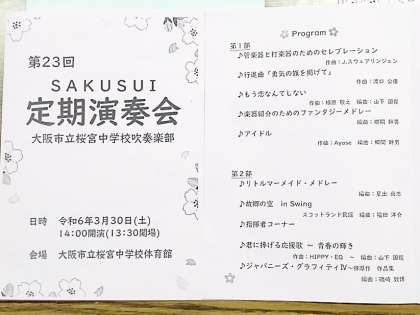 第23回
SAKUSUI
定期演奏会
大阪市立桜宮中学校吹奏楽部
日時 令和6年3月30日(土)
14:00開演(13:30開場)
会場 大阪市立桜宮中学校体育館
Program
第1部
♪管楽器と打楽器のためのセレブレーション
作曲：J.スウェアリンジェン
♪行進曲「勇気の旗を掲げて」
作曲：渡口 公康
♪もう恋なんてしない
作曲：槇原 敬之 編曲：山下 国俊
♪楽器紹介のためのファンタジーメドレー
編曲：郷間 幹男
♪アイドル
作曲：Ayase 編曲：郷間 幹男
第2部
♪リトルマーメイド・メドレー
編曲：星出 尚志
♪故郷の空 in Swing
スコットランド民謡 編曲：福田 洋介
♪指揮者コーナー
♪君に捧げる応援歌 ～ 青春の輝き
作曲：HIPPY・EQ ～ 編曲：山下 国俊
♪ジャパニーズ・グラフィティⅣ～弾厚作 作品集
編曲：磯崎 敦博